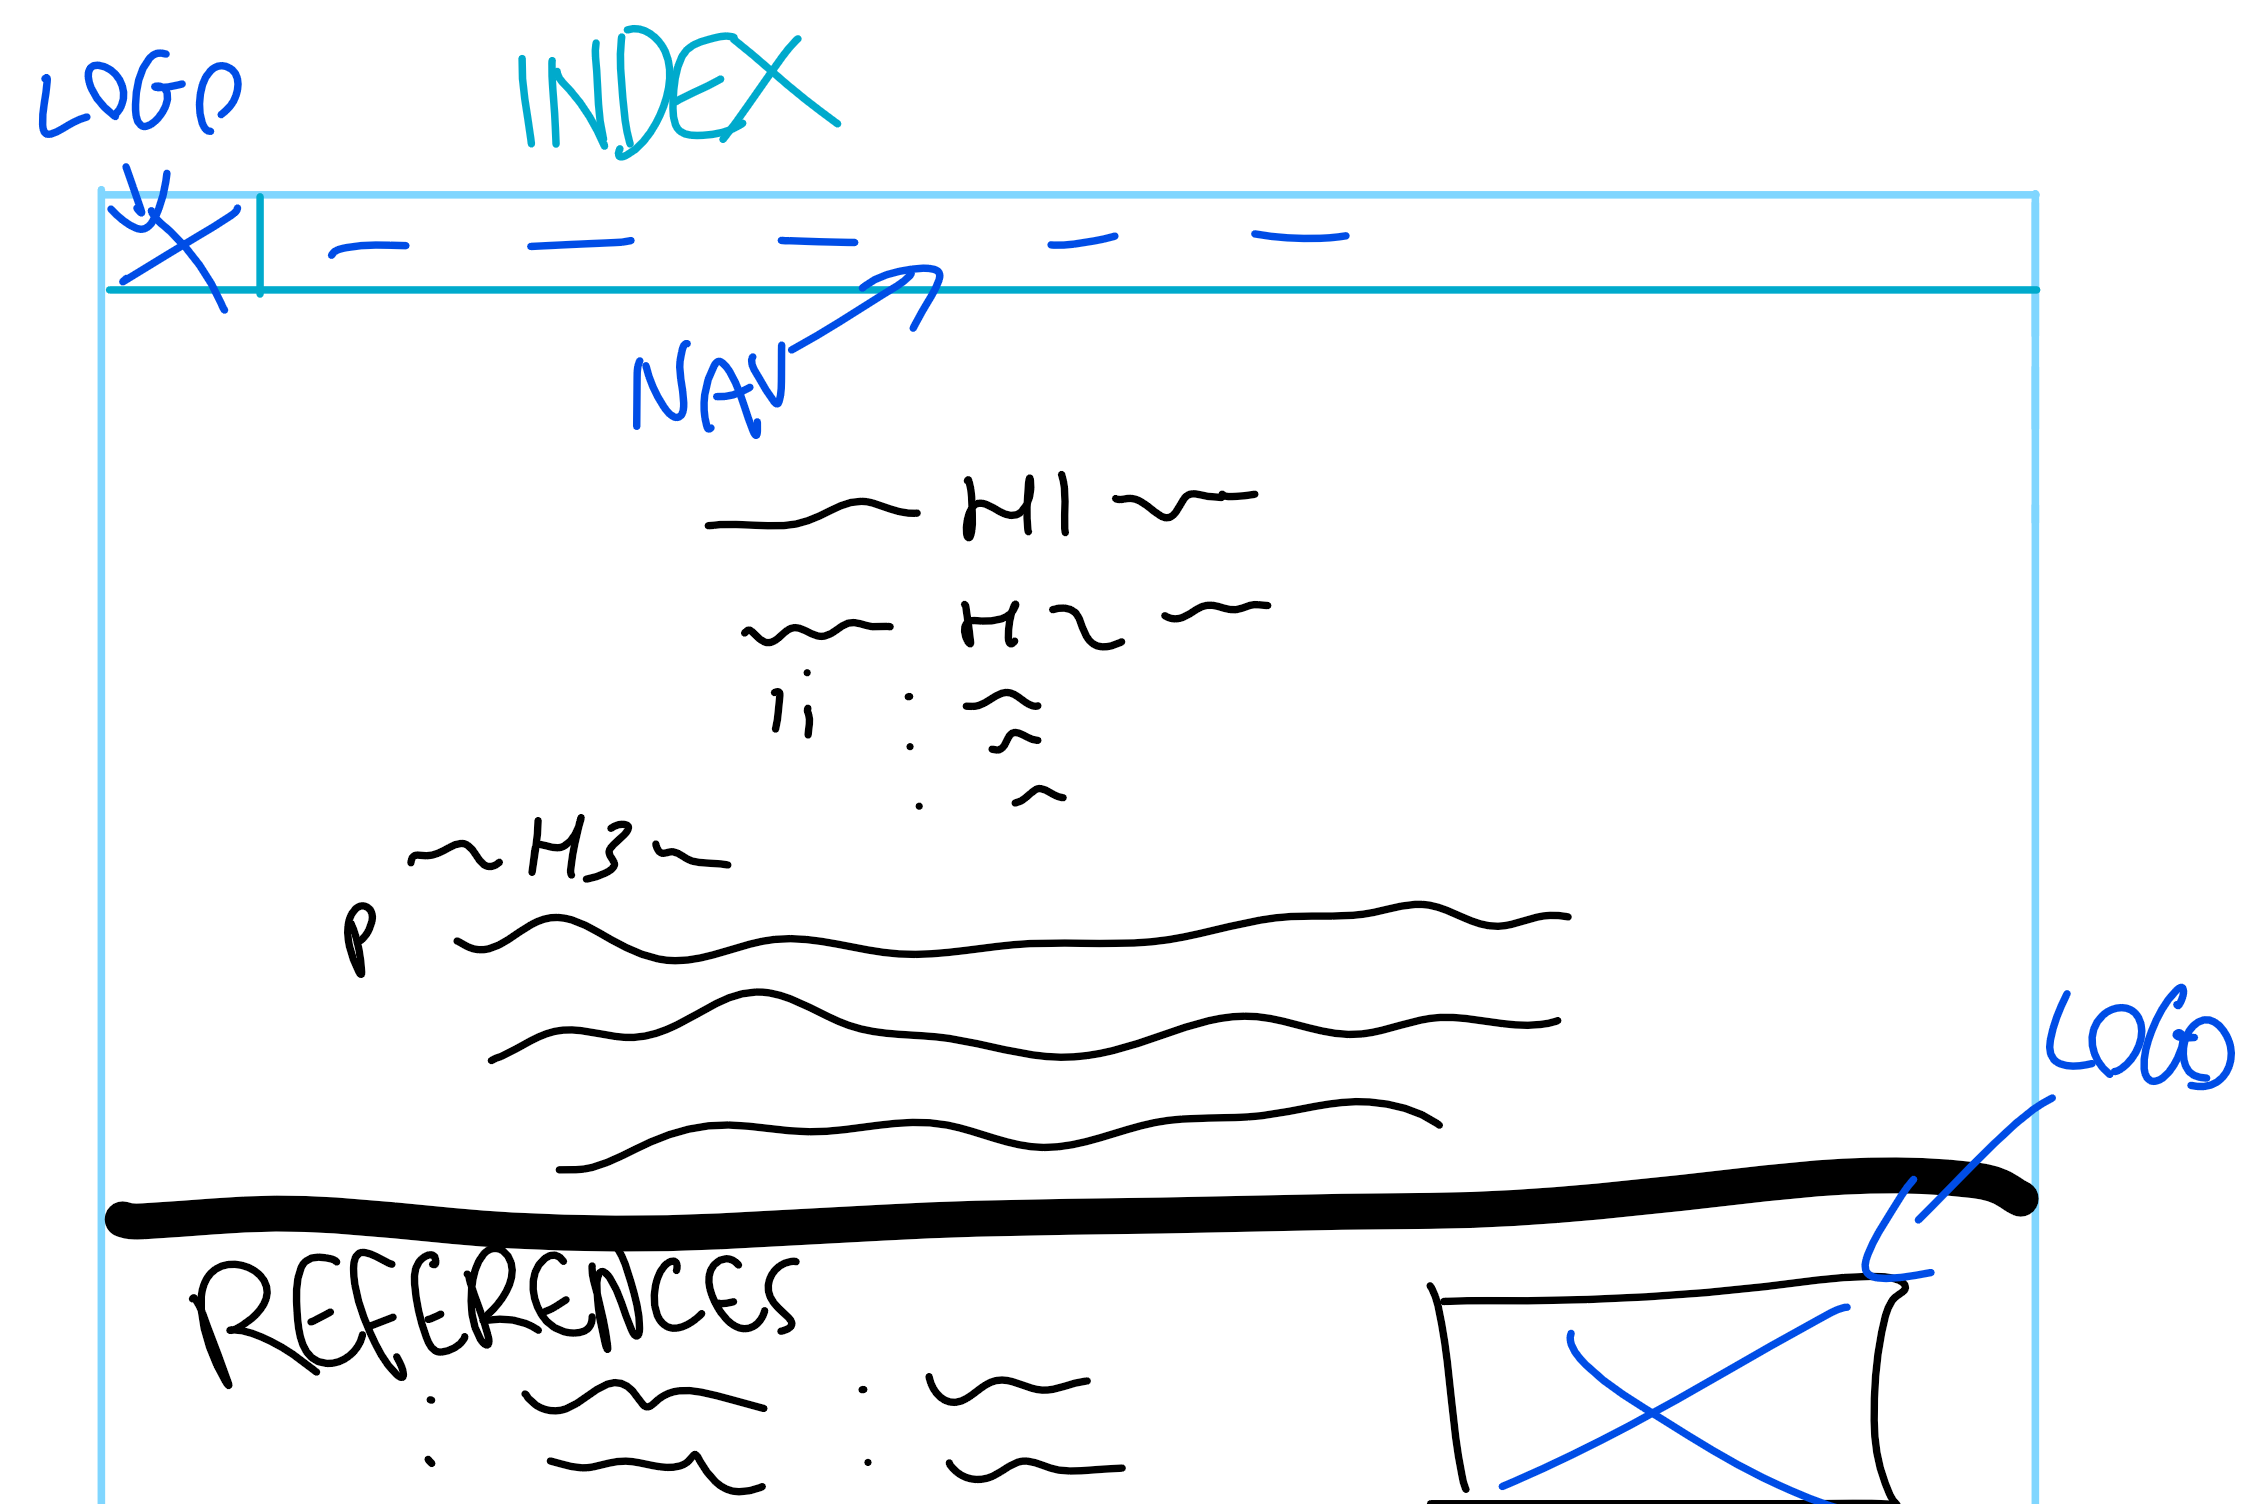 LOGO
INDEX
NAV
H1
H2
li
H3
P
LOGO
REFERENCES